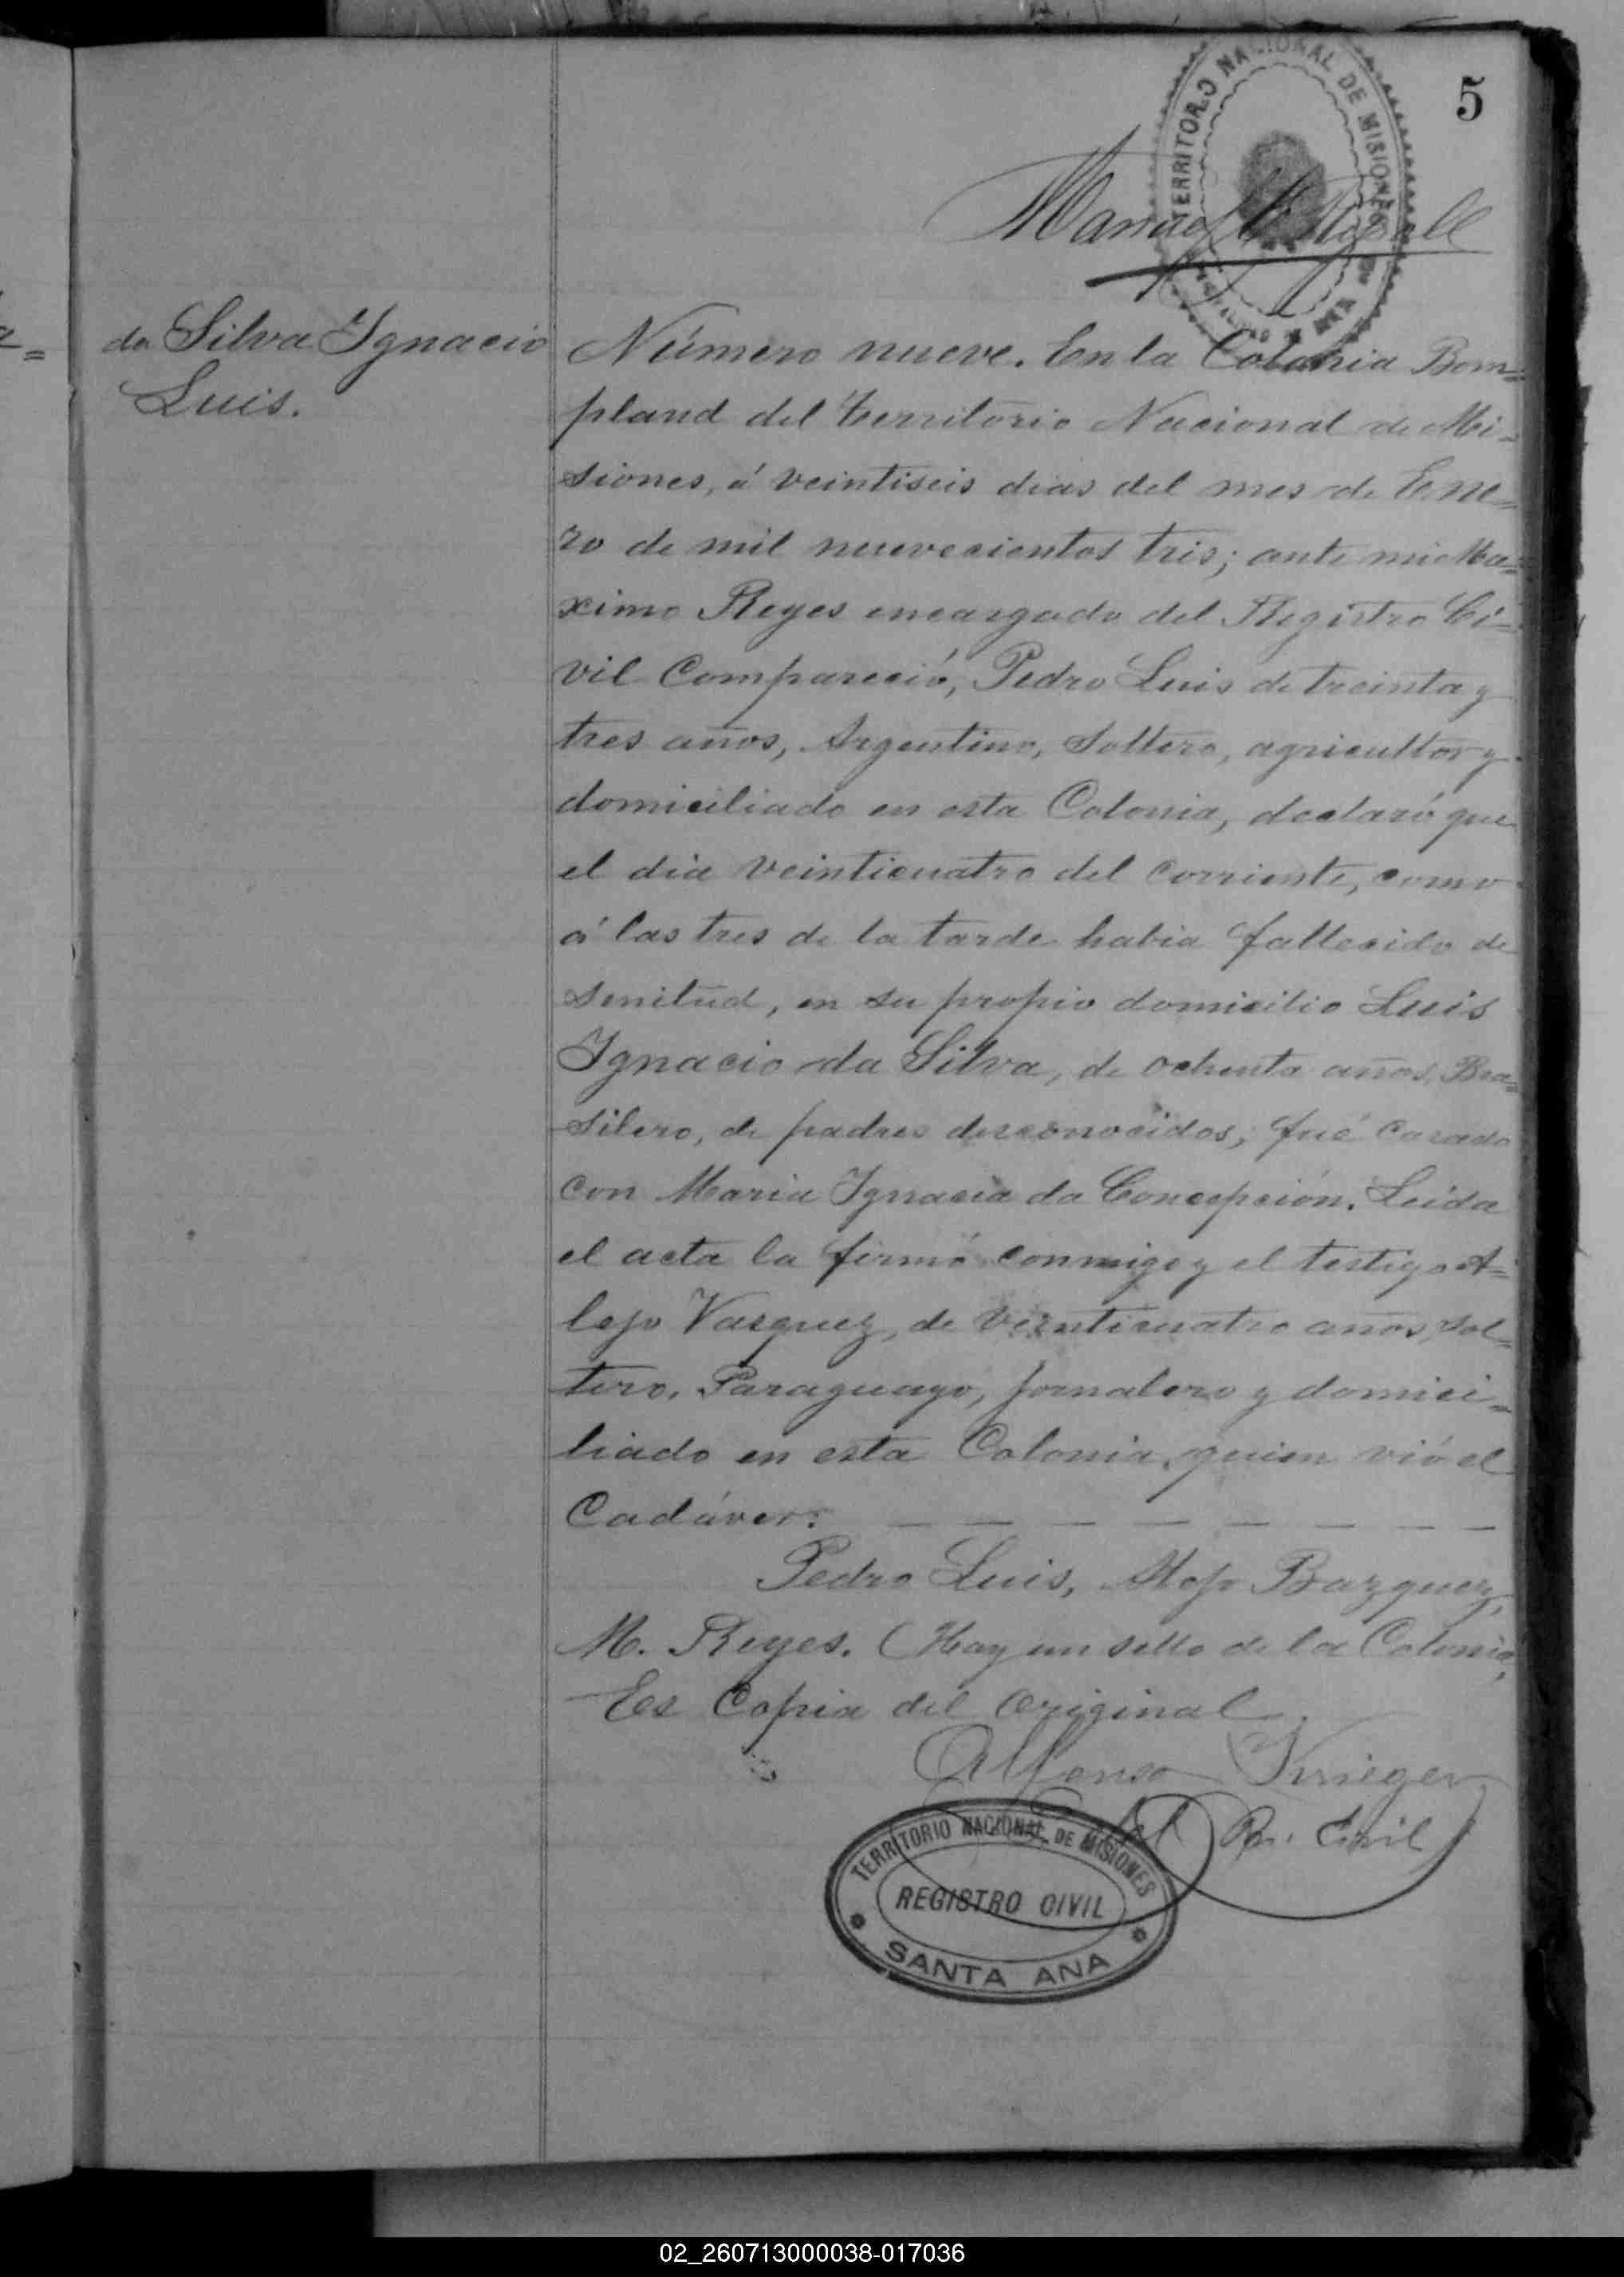 5
TERRITORIO NACIONAL DE MISIONES
Manuel
da Silva Ignacio
Luis.
Número nueve. En la Colonia Bom=
pland del territorio Nacional de Mi=
siones, á veintiseis dias del mes de Ene=
ro de mil nuevecientos tres; ante mi Ma=
ximo Reyes encargado del Registro Ci=
vil Compareció, Pedro Luis de treinta y
tres años, Argentino, Soltero, agricultor y
domiciliado en esta Colonia, declaró que
el dia veinticuatro del corriente, como
á las tres de la tarde habia fallecido de
senitud, en su propio domicilio Luis
Ignacio da Silva, de ochenta años, Bra=
silero, de padres desconocidos; fué casado
con Maria Ignacia da Concepción. Leida
el acta la firmó conmigo y el testigo A=
lejo Vasquez, de veinticuatro años, sol=
tero, Paraguayo, jornalero y domici=
liado en esta Colonia, quien vió el
Cadáver:
Pedro Luis, Alejo Bazquez,
M. Reyes. (Hay un sello de la Colonia,
Es Copia del Original.
Alfonso Krieger
Civil
TERRITORIO NACIONAL DE MISIONES
REGISTRO CIVIL
SANTA ANA
02_260713000038-017036